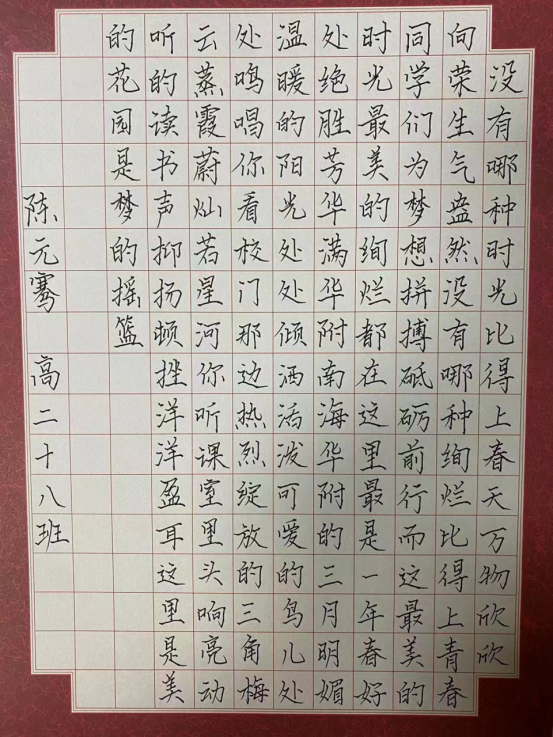 没有哪种时光比得上春天万物欣欣
向荣生气盎然没有哪种绚烂比得上青春
同学们为梦想拼搏砥砺前行而这最美的
时光最美的绚烂都在这里最是一年春好
处绝胜芳华满华附南海华附的三月明媚
温暖的阳光处处倾洒活泼可爱的鸟儿处
处鸣唱你看校门那边热烈绽放的三角梅
云蒸霞蔚灿若星河你听课室里头响亮动
听的读书声抑扬顿挫洋洋盈耳这里是美
的花园是梦的摇篮
陈元骞 高二十八班